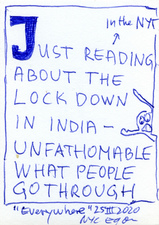 in the NYT
JUST READING
ABOUT THE
LOCK DOWN
IN INDIA –
UNFATHOMABLE
WHAT PEOPLE
GO THROUGH
"Everywhere" 25 III 2020
NYC